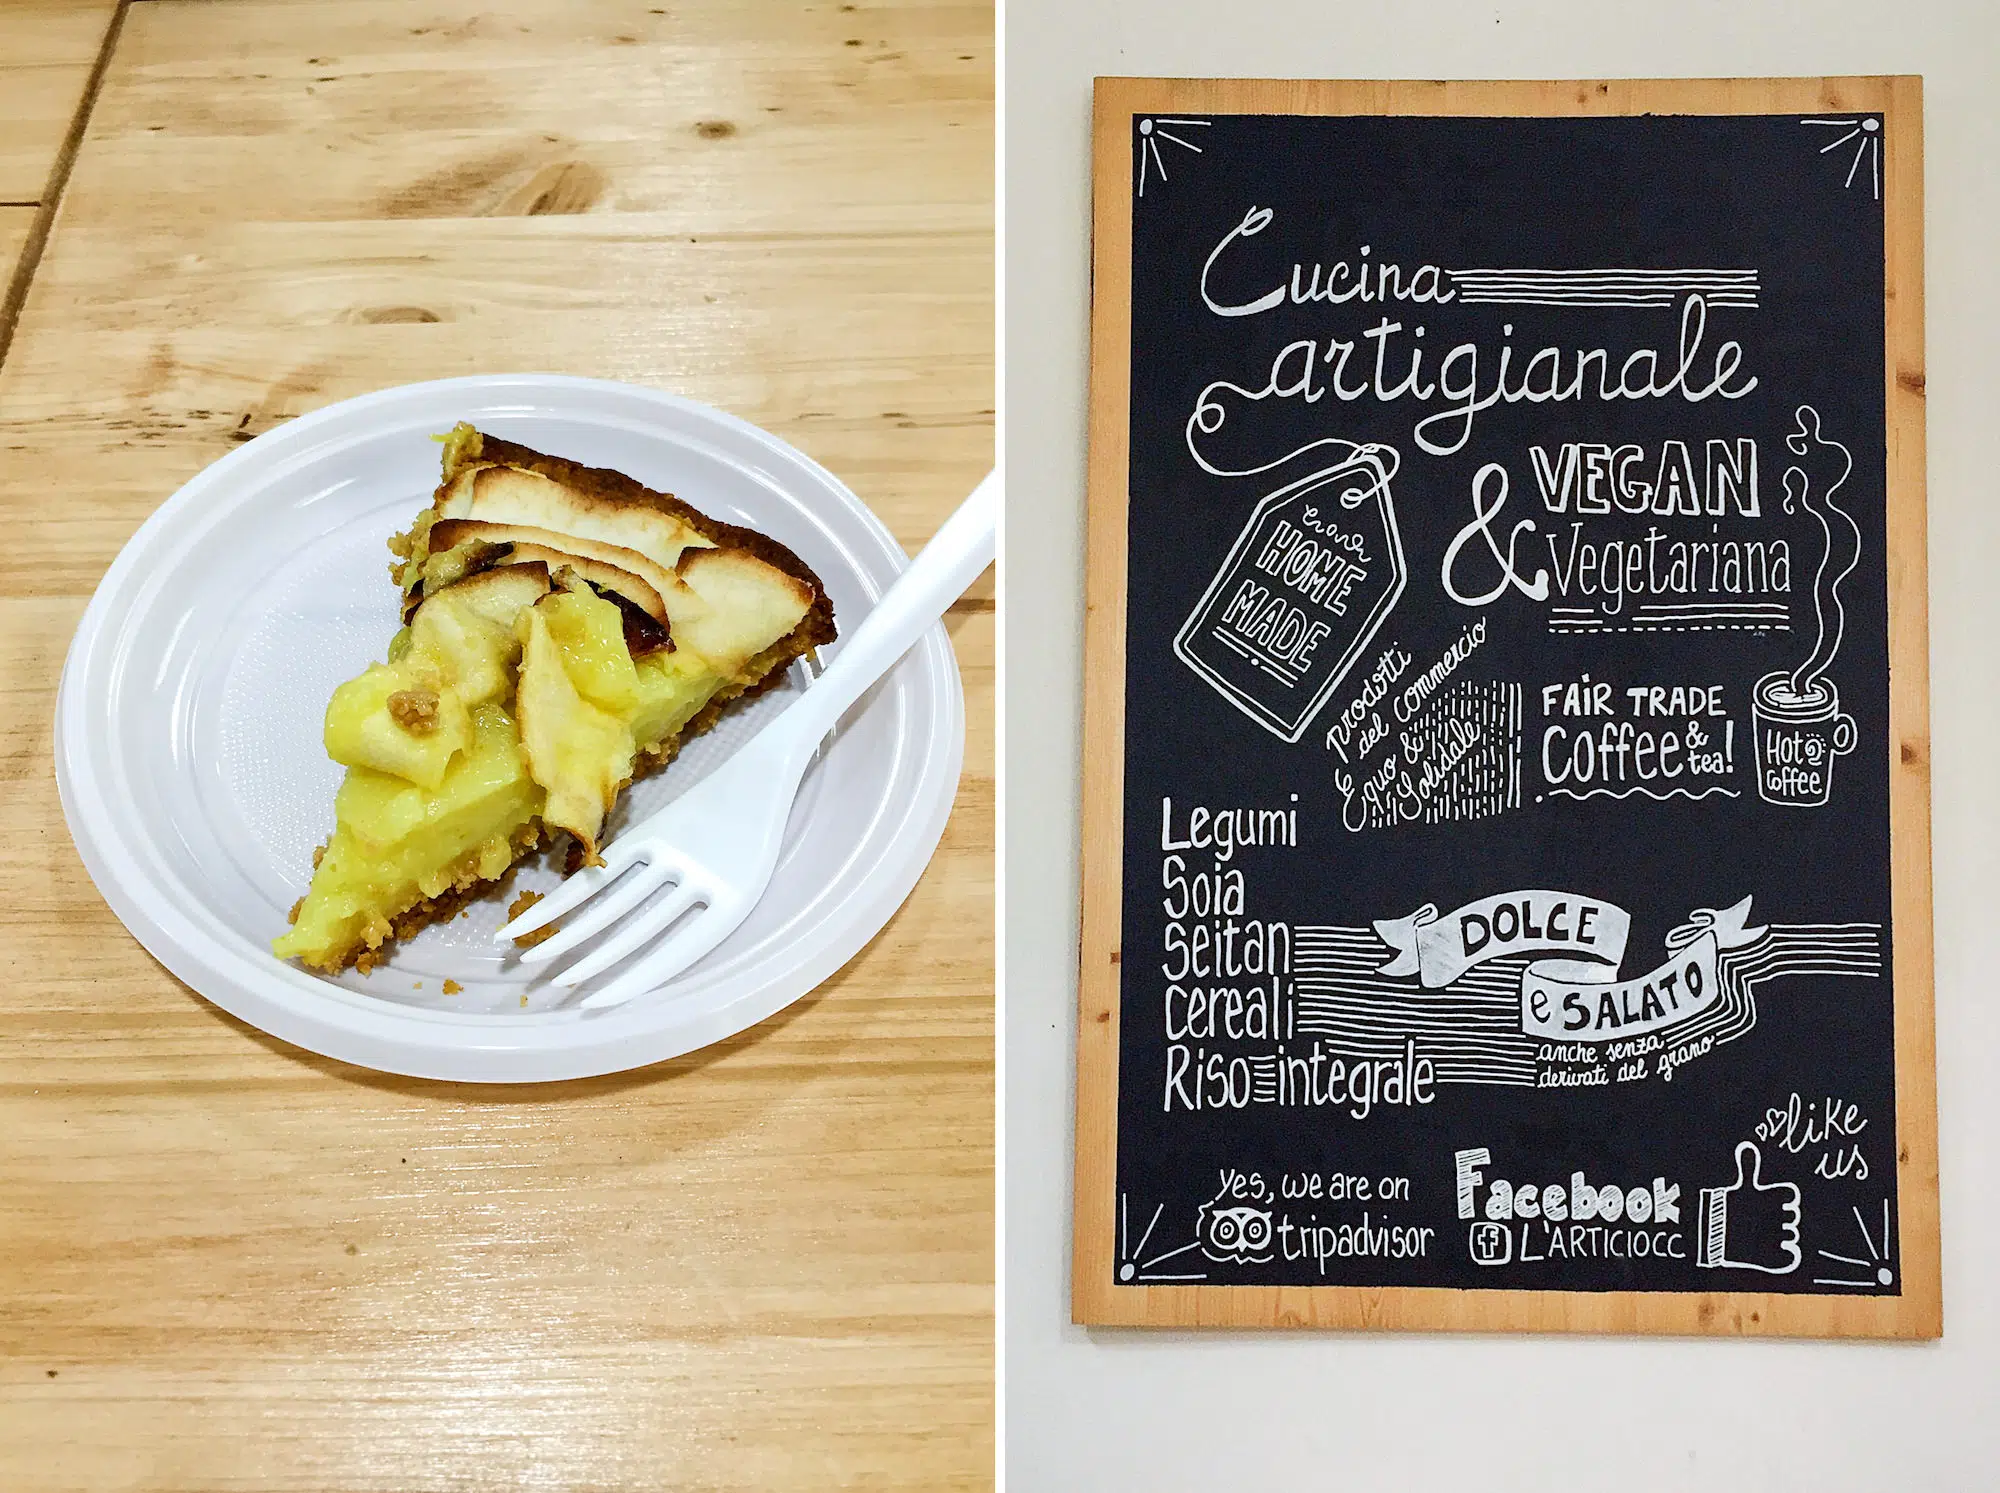 Cucina
artigianale
HOME
MADE
& VEGAN
Vegetariana
Prodotti
del Commercio
Equo &
Solidale
FAIR TRADE
Coffee &
tea!
Hot
Coffee
Legumi
Soia
Seitan
cereali
Riso integrale
DOLCE
e SALATO
anche senza
derivati del grano
like
us
yes, we are on
tripadvisor
Facebook
f L'ARTICIOCC